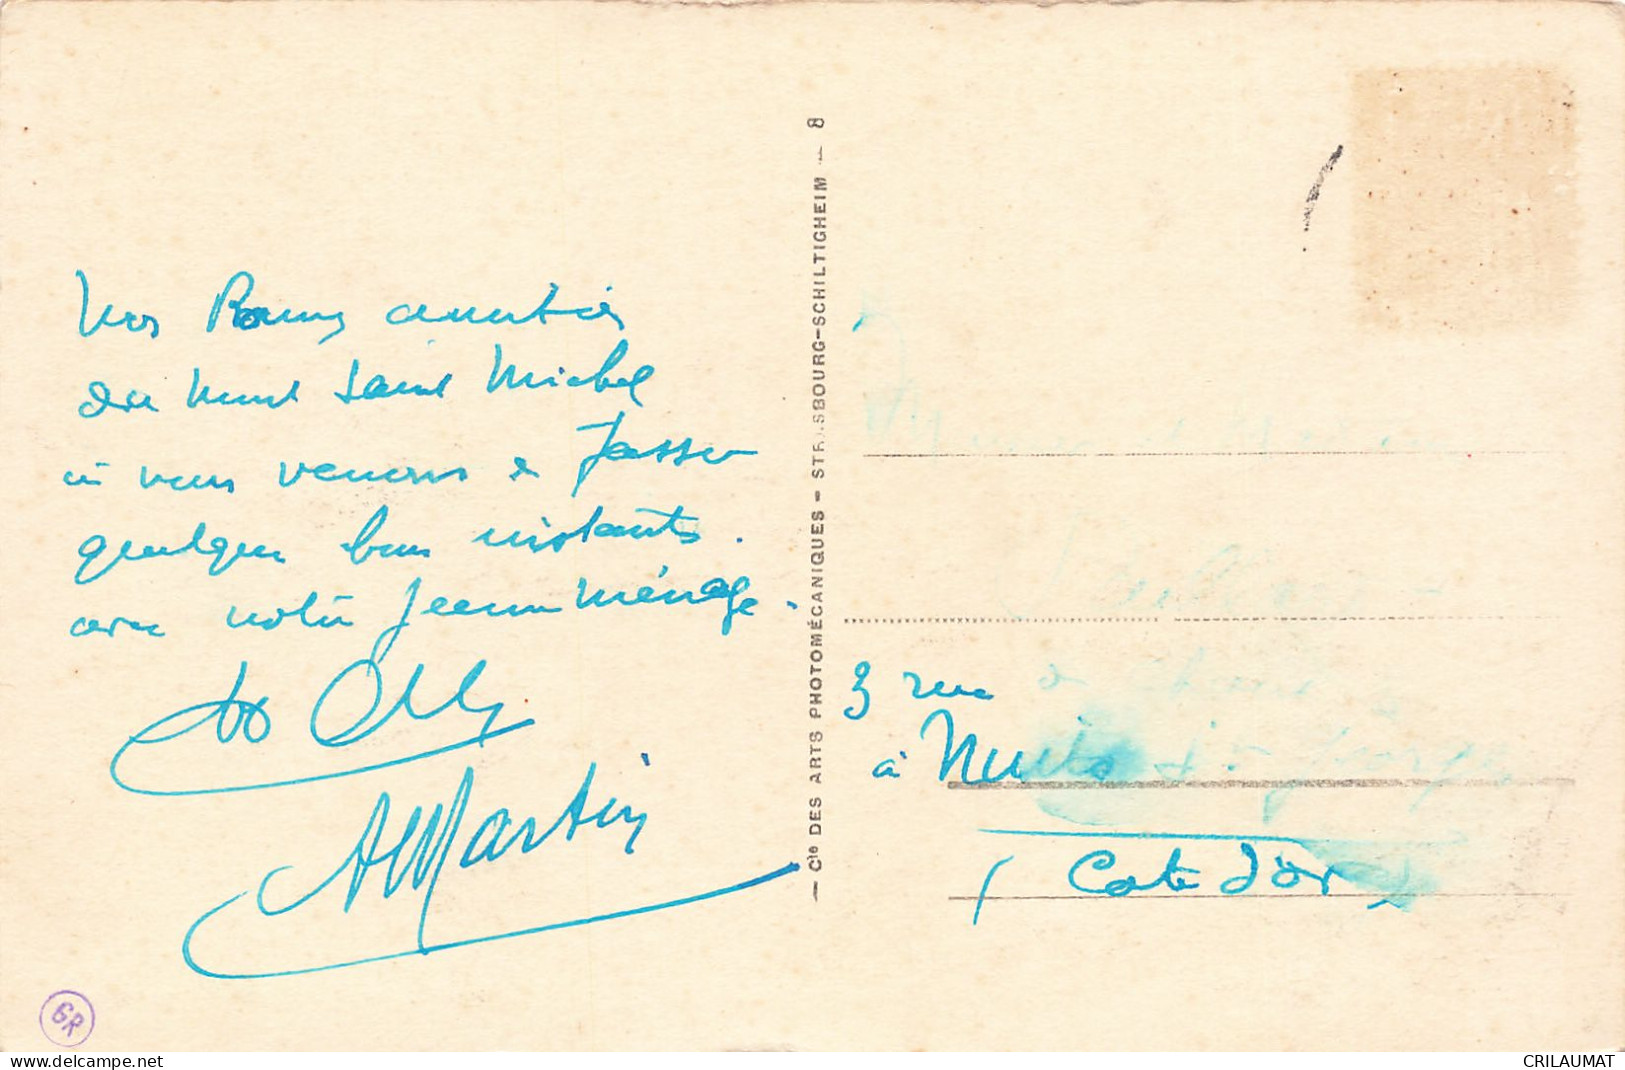 Nos Bonnes amitiés
du Mont Saint Michel
où nous venons de passer
quelques bons instants.
avec notre jeune ménage.
AMartin
GR
— Cie DES ARTS PHOTOMÉCANIQUES — STRASBOURG-SCHILTIGHEIM — 8
3 rue
à Nuits St Georges
(Cote d'Or)
www.delcampe.net
CRILAUMAT